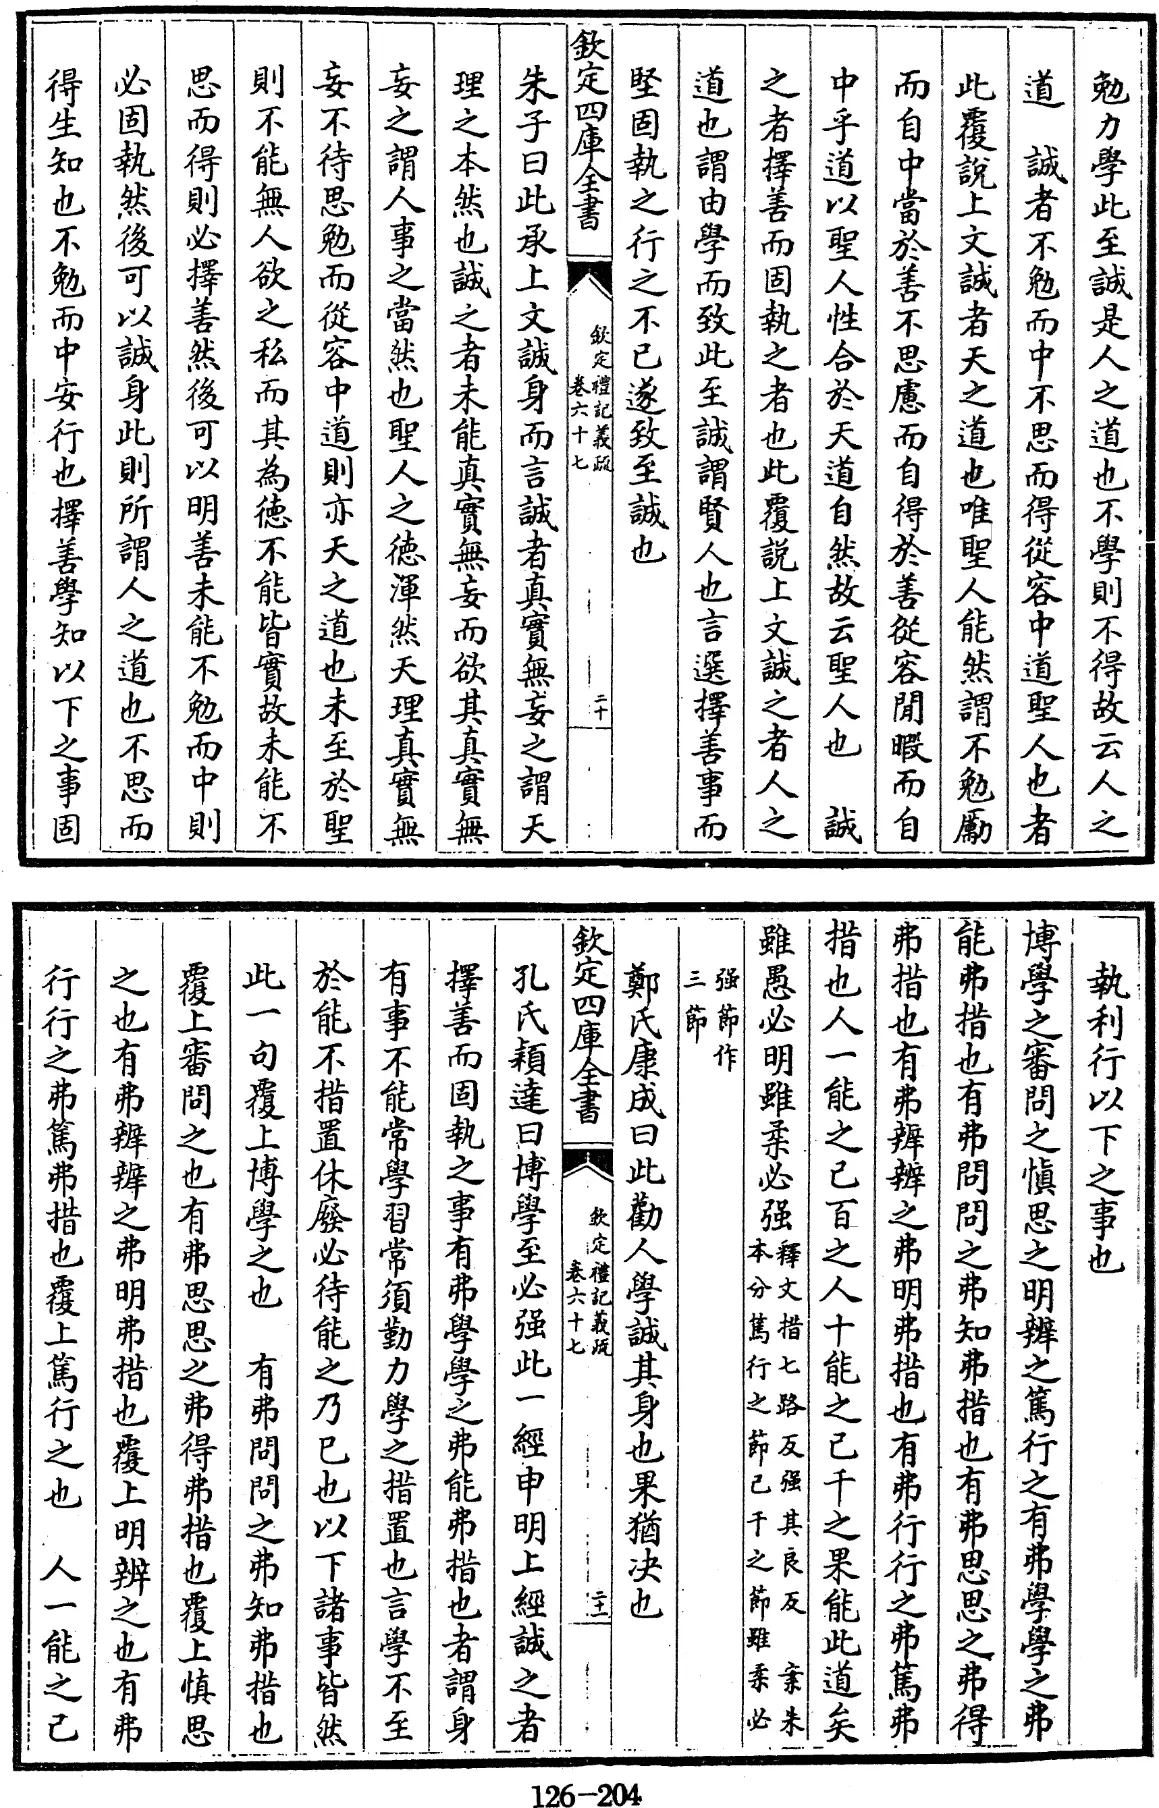 勉力學此至誠是人之道也不學則不得故云人之
道　誠者不勉而中不思而得從容中道聖人也者
此覆說上文誠者天之道也唯聖人能然謂不勉勵
而自中當於善不思慮而自得於善從容閒暇而自
中乎道以聖人性合於天道自然故云聖人也　誠
之者擇善而固執之者也此覆說上文誠之者人之
道也謂由學而致此至誠謂賢人也言選擇善事而
堅固執之行之不已遂致至誠也
欽定四庫全書
欽定禮記義疏
卷六十七
二十
朱子曰此承上文誠身而言誠者真實無妄之謂天
理之本然也誠之者未能真實無妄而欲其真實無
妄之謂人事之當然也聖人之德渾然天理真實無
妄不待思勉而從容中道則亦天之道也未至於聖
則不能無人欲之私而其為德不能皆實故未能不
思而得則必擇善然後可以明善未能不勉而中則
必固執然後可以誠身此則所謂人之道也不思而
得生知也不勉而中安行也擇善學知以下之事固
執利行以下之事也
博學之審問之慎思之明辨之篤行之有弗學學之弗
能弗措也有弗問問之弗知弗措也有弗思思之弗得
弗措也有弗辨辨之弗明弗措也有弗行行之弗篤弗
措也人一能之己百之人十能之己千之果能此道矣
雖愚必明雖柔必强
釋文措七路反强其良反　案朱
本分篤行之節己千之節雖柔必
强節作
三節
鄭氏康成曰此勸人學誠其身也果猶决也
欽定四庫全書
欽定禮記義疏
卷六十七
二十一
孔氏穎達曰博學至必强此一經申明上經誠之者
擇善而固執之事有弗學學之弗能弗措也者謂身
有事不能常學習常須勤力學之措置也言學不至
於能不措置休廢必待能之乃已也以下諸事皆然
此一句覆上博學之也　有弗問問之弗知弗措也
覆上審問之也有弗思思之弗得弗措也覆上慎思
之也有弗辨辨之弗明弗措也覆上明辨之也有弗
行行之弗篤弗措也覆上篤行之也　人一能之己
126-204